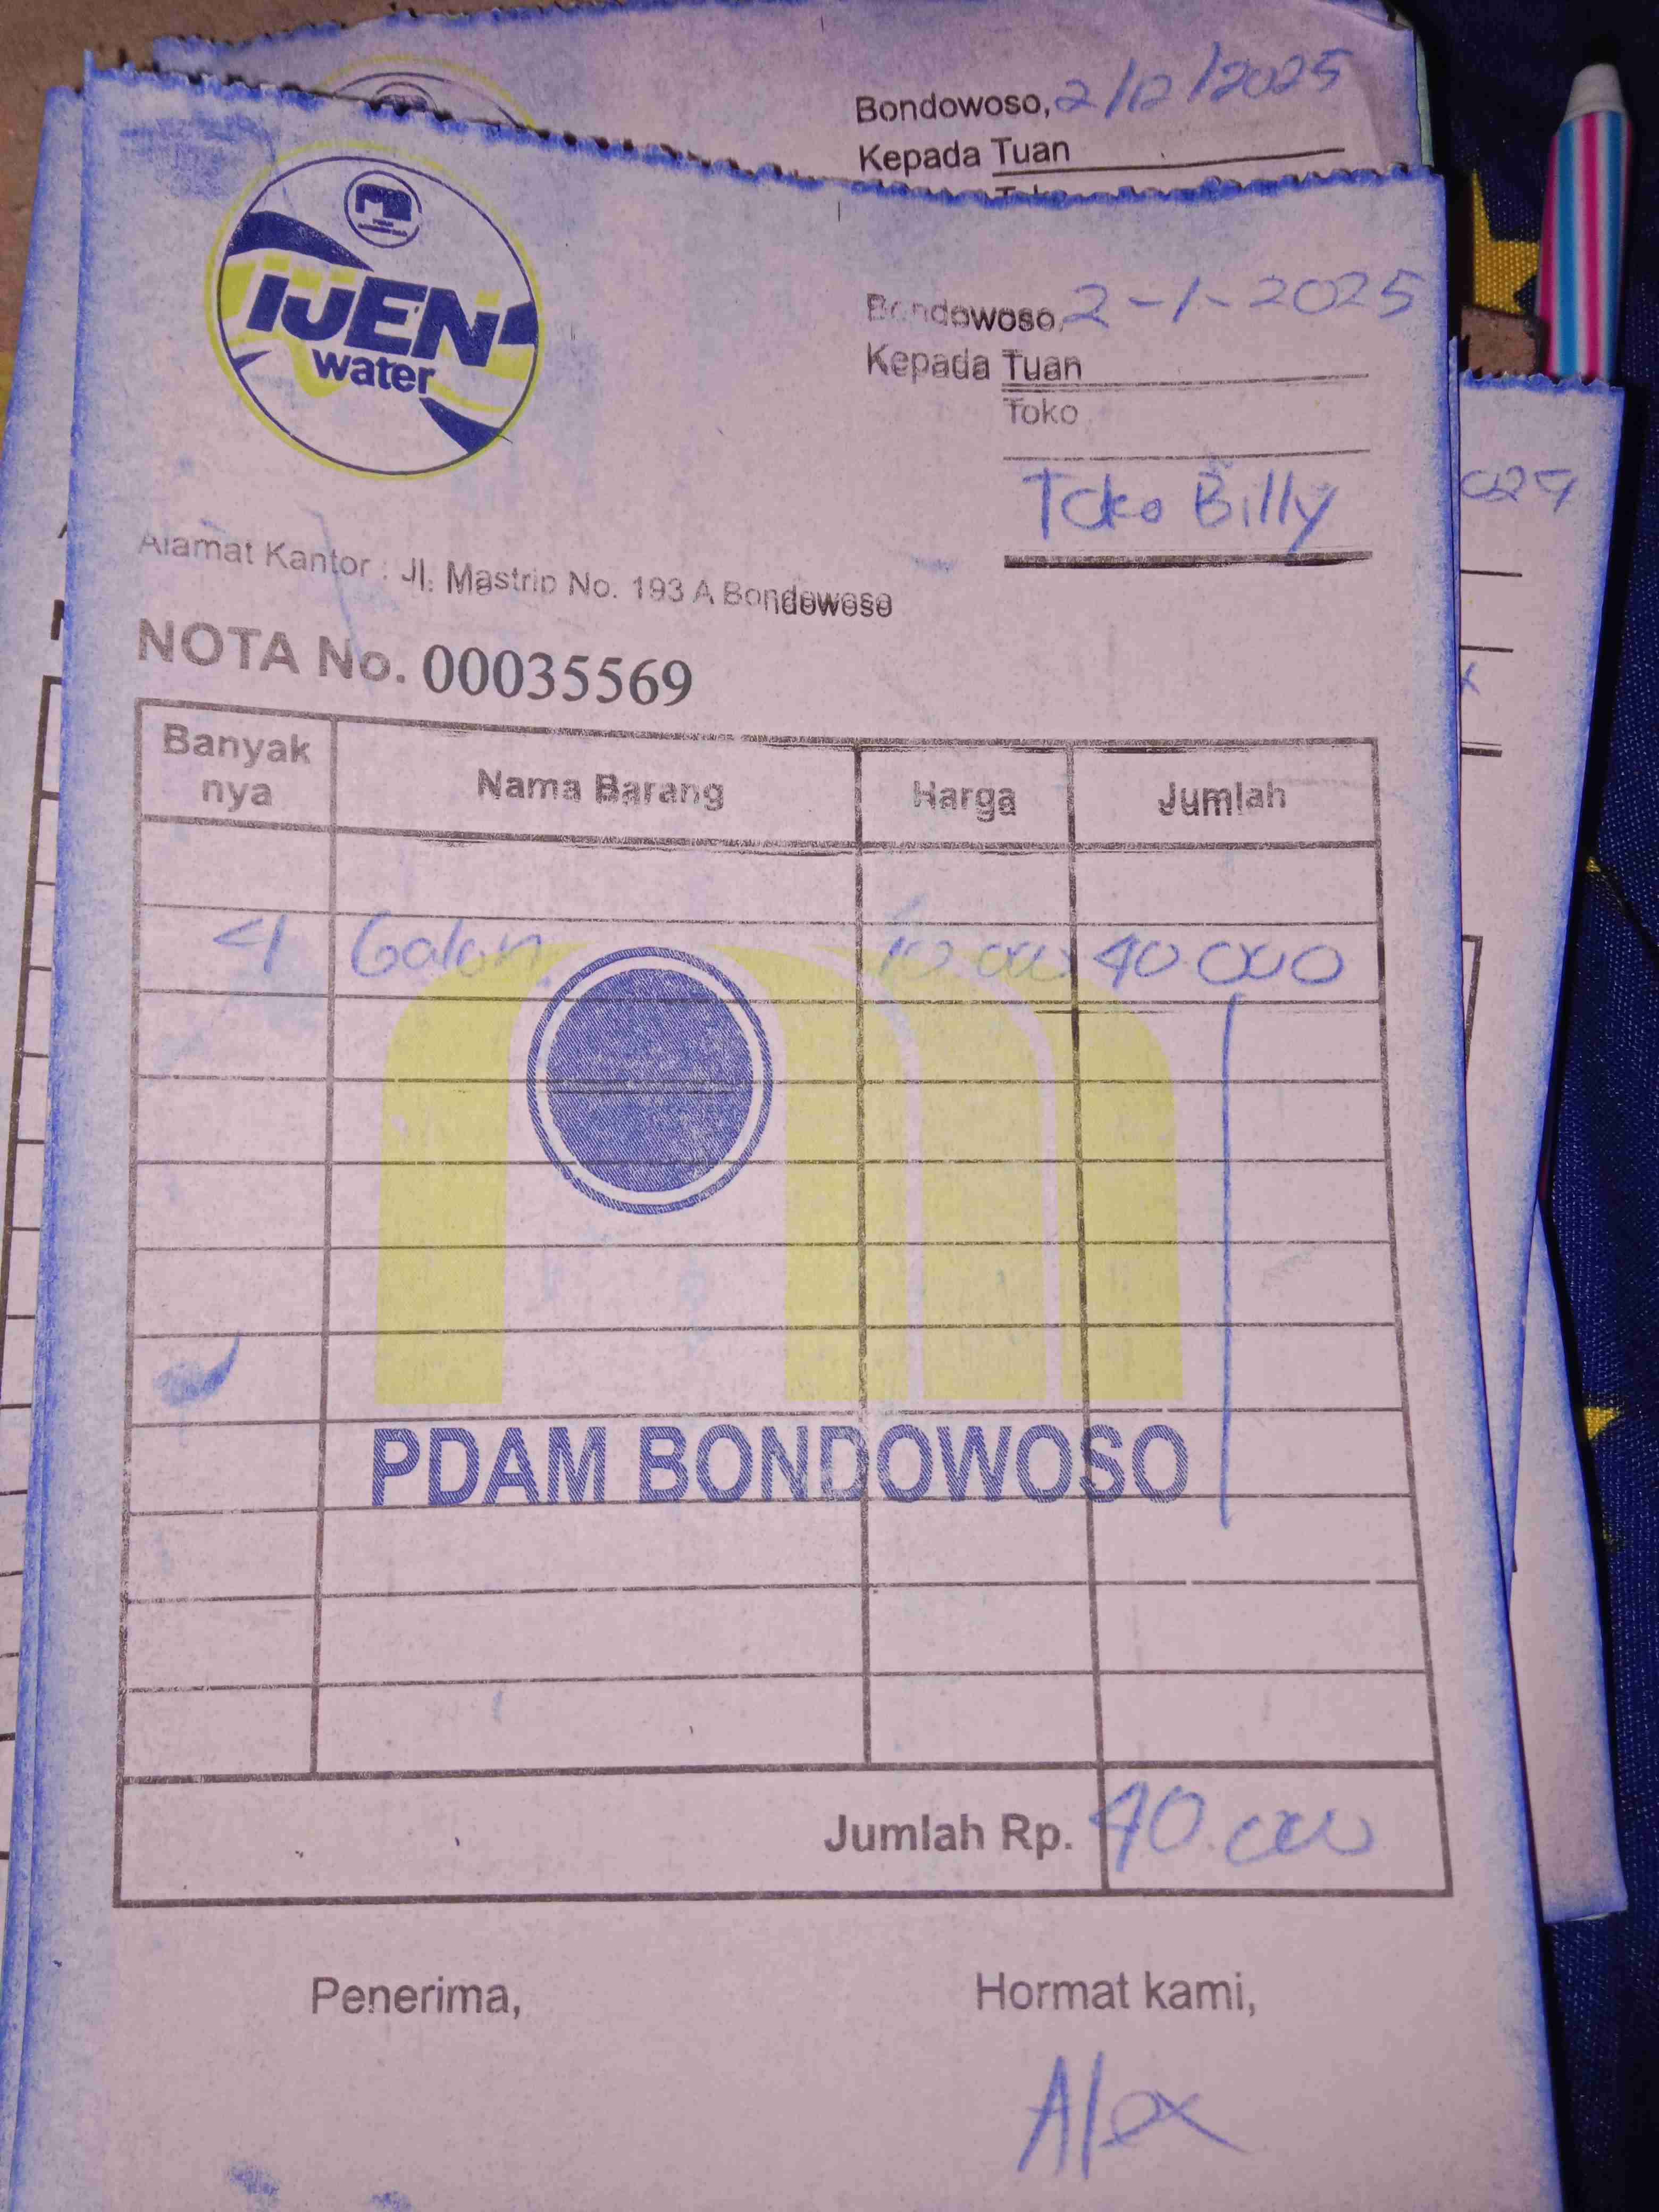 Bondowoso, 2/12/2025
Kepada Tuan
IJEN
water
Bondowoso, 2-1-2025
Kepada Tuan
Toko
Toko Billy
Alamat Kantor : Jl. Mastrip No. 193 A Bondowoso
NOTA No. 00035569
Banyak nya Nama Barang Harga Jumlah
4 Galon 10.000 40.000
PDAM BONDOWOSO
Jumlah Rp. 40.000
Penerima, Hormat kami,
Alex